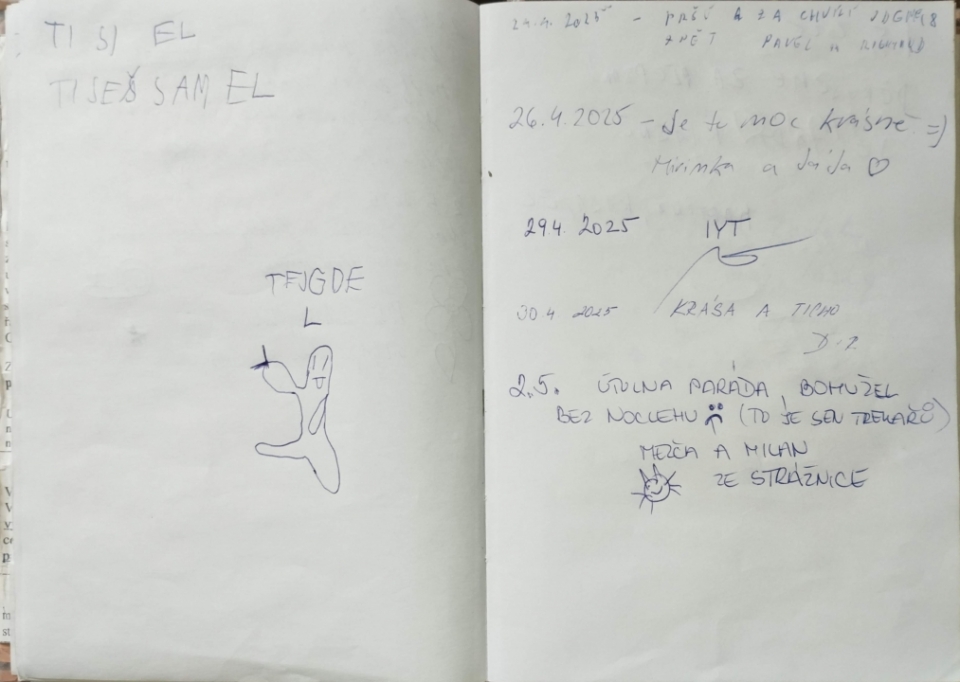 TI SI EL
TI SEŠ SAM EL
TEJGDE
L
24.4. 2025 - PRŠÍ A ZA CHVÍLI
ZPĚT PAVEL A RICHARD
26.4.2025 - Je tu moc krásně =)
Mirinka a Jája ♡
29.4. 2025 IYT
30.4 2025 KRÁSA A TICHO
2.5. ÚTULNA PARÁDA, BOHUŽEL
BEZ NOCLEHU (TO JE SEN TREKAŘŮ)
A MILAN
ZE STRÁŽNICE